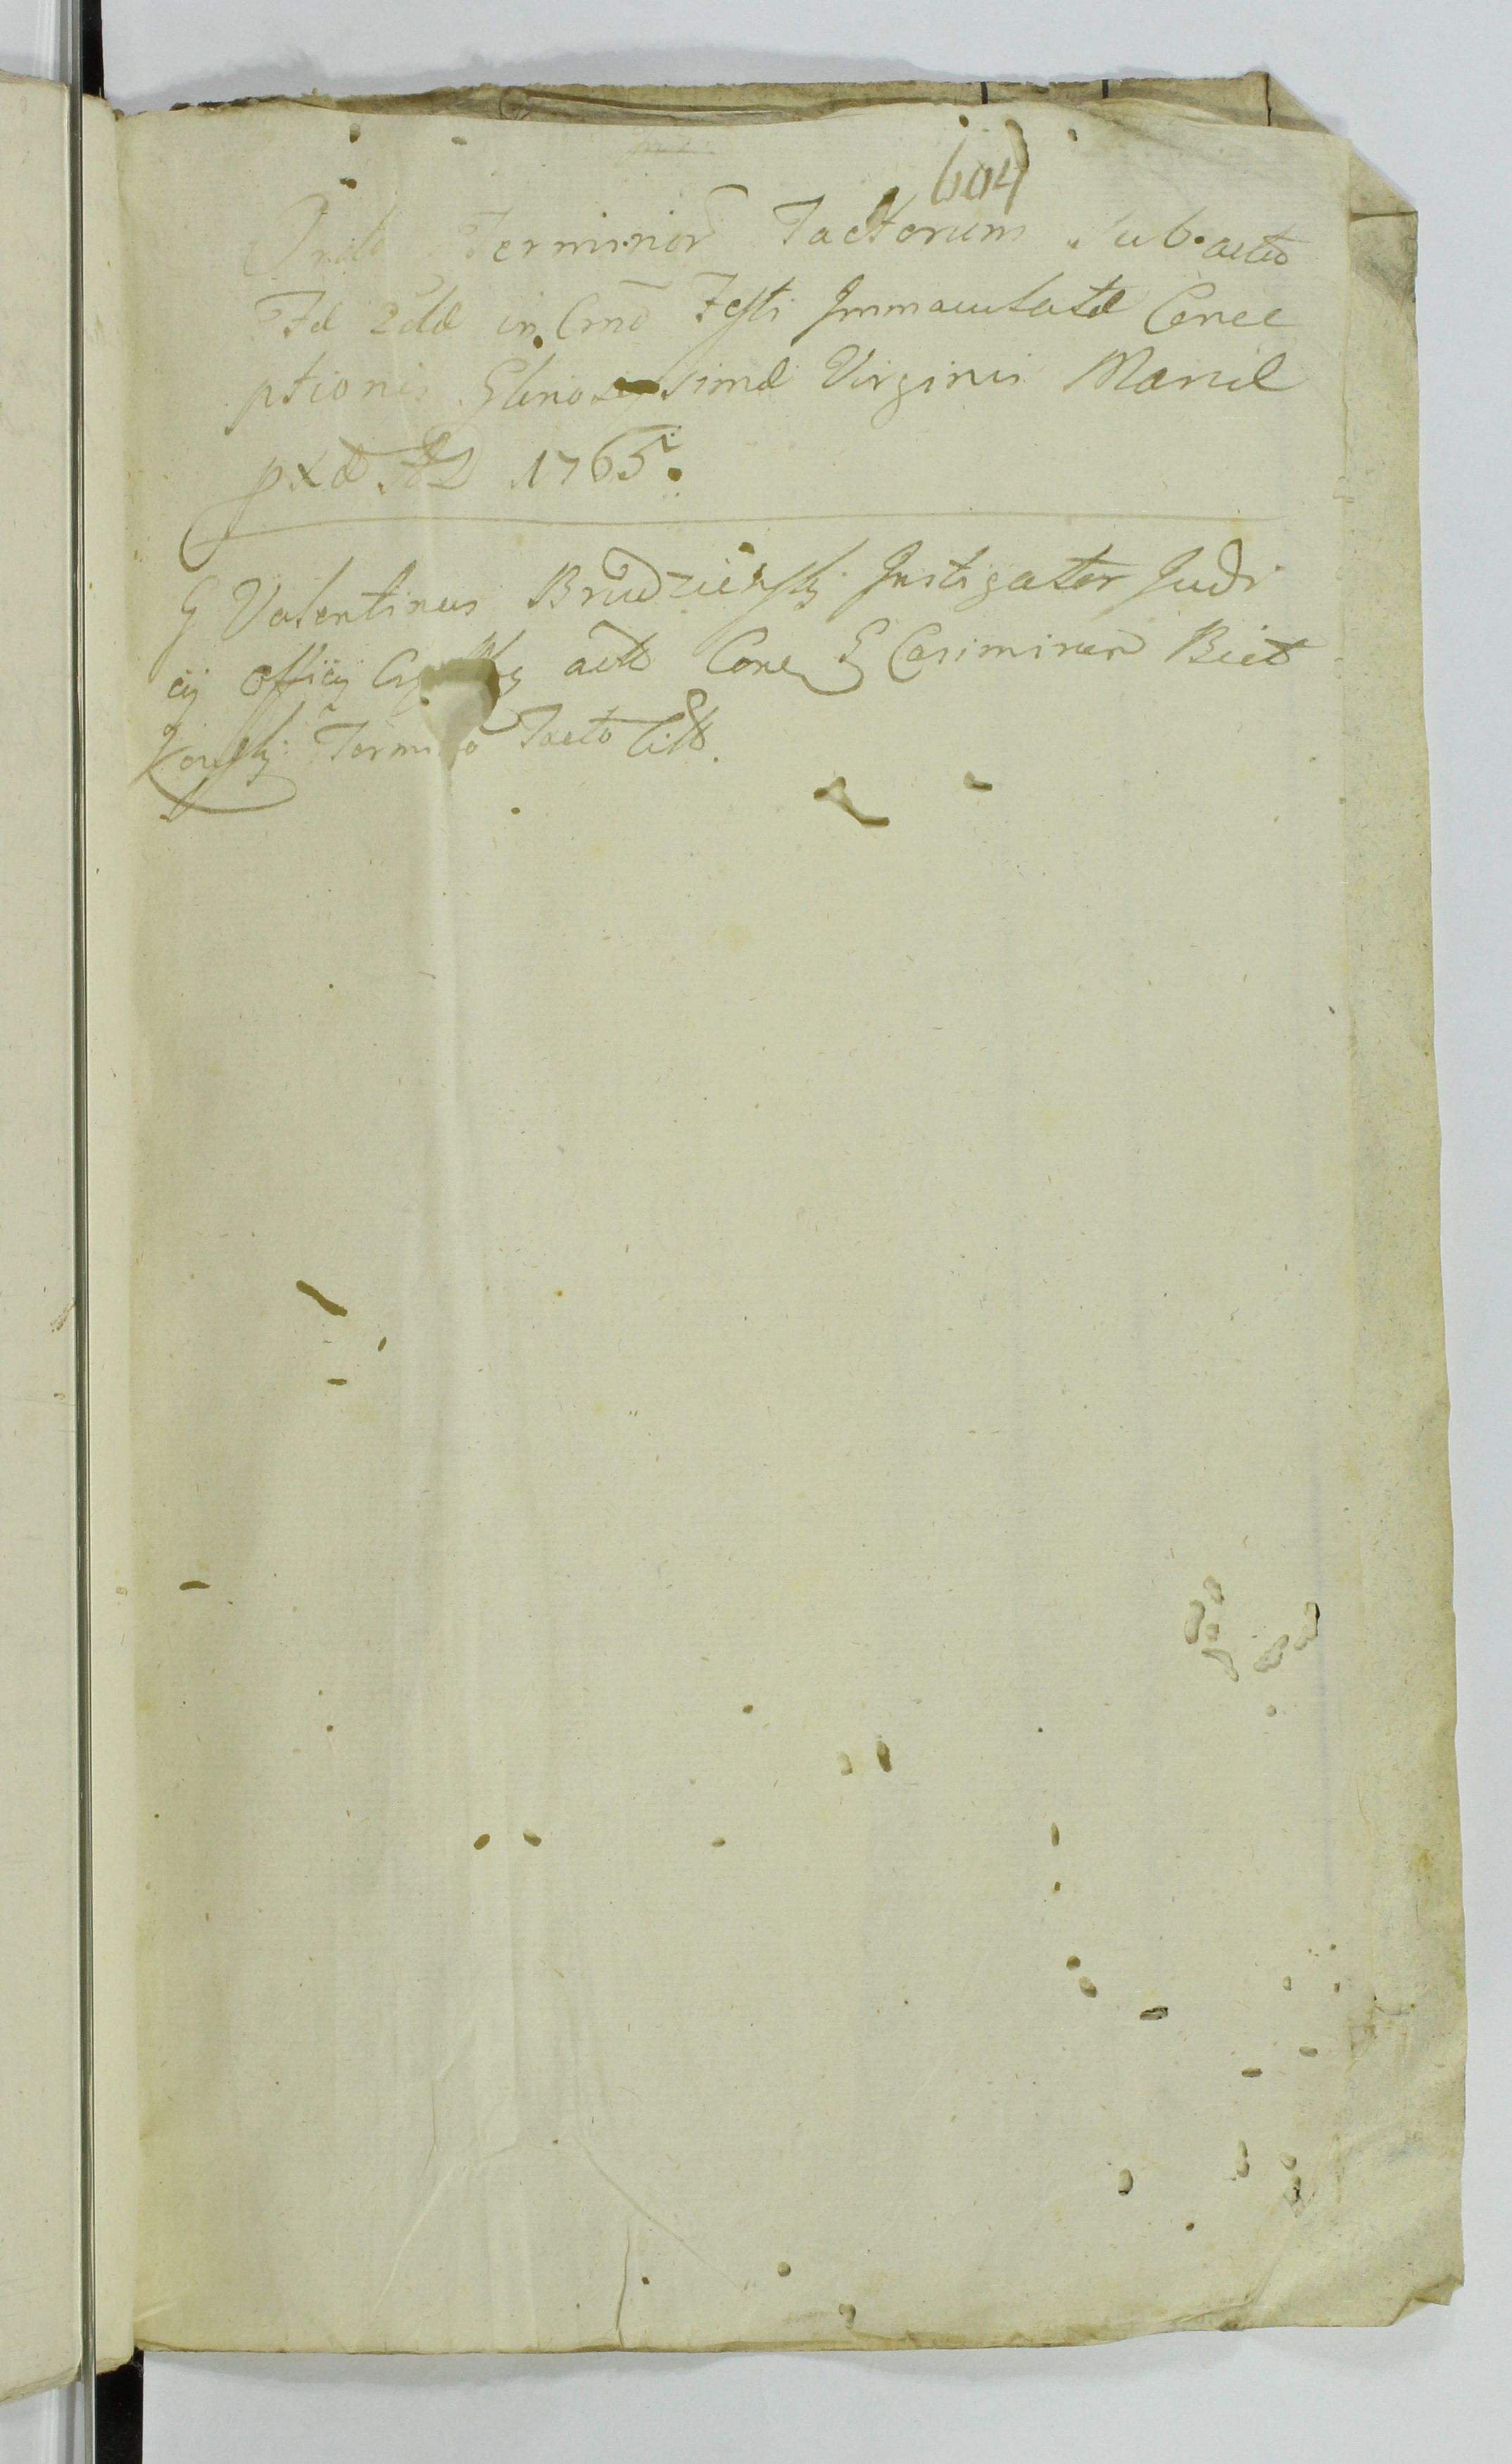 604
Ordo Terminor Tactorum Sub actu
Fæ 2dæ in Cinõ Festi Immaculatæ Conce
ptionis Gloriosissimæ Virginis Mariæ
pxæ AD 1765.
G Valentinus Brudzienskj Instigator Judi
cij officij actò Conẽ G Casimirum Biet
kouskj Termino Tacto